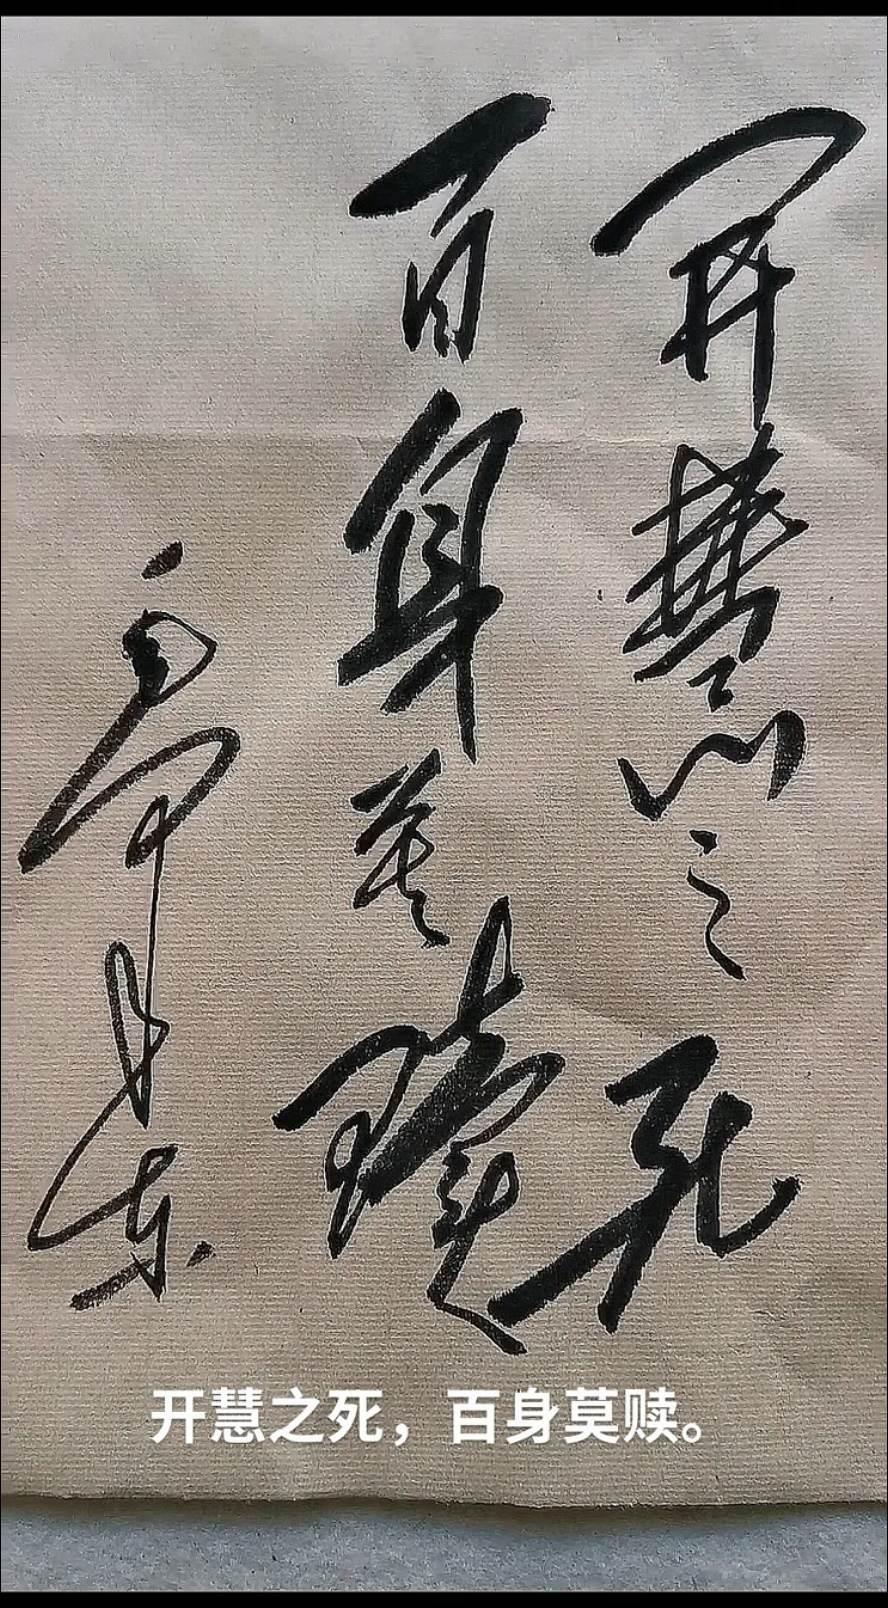 開慧之死
百身莫贖
毛泽东
开慧之死，百身莫赎。